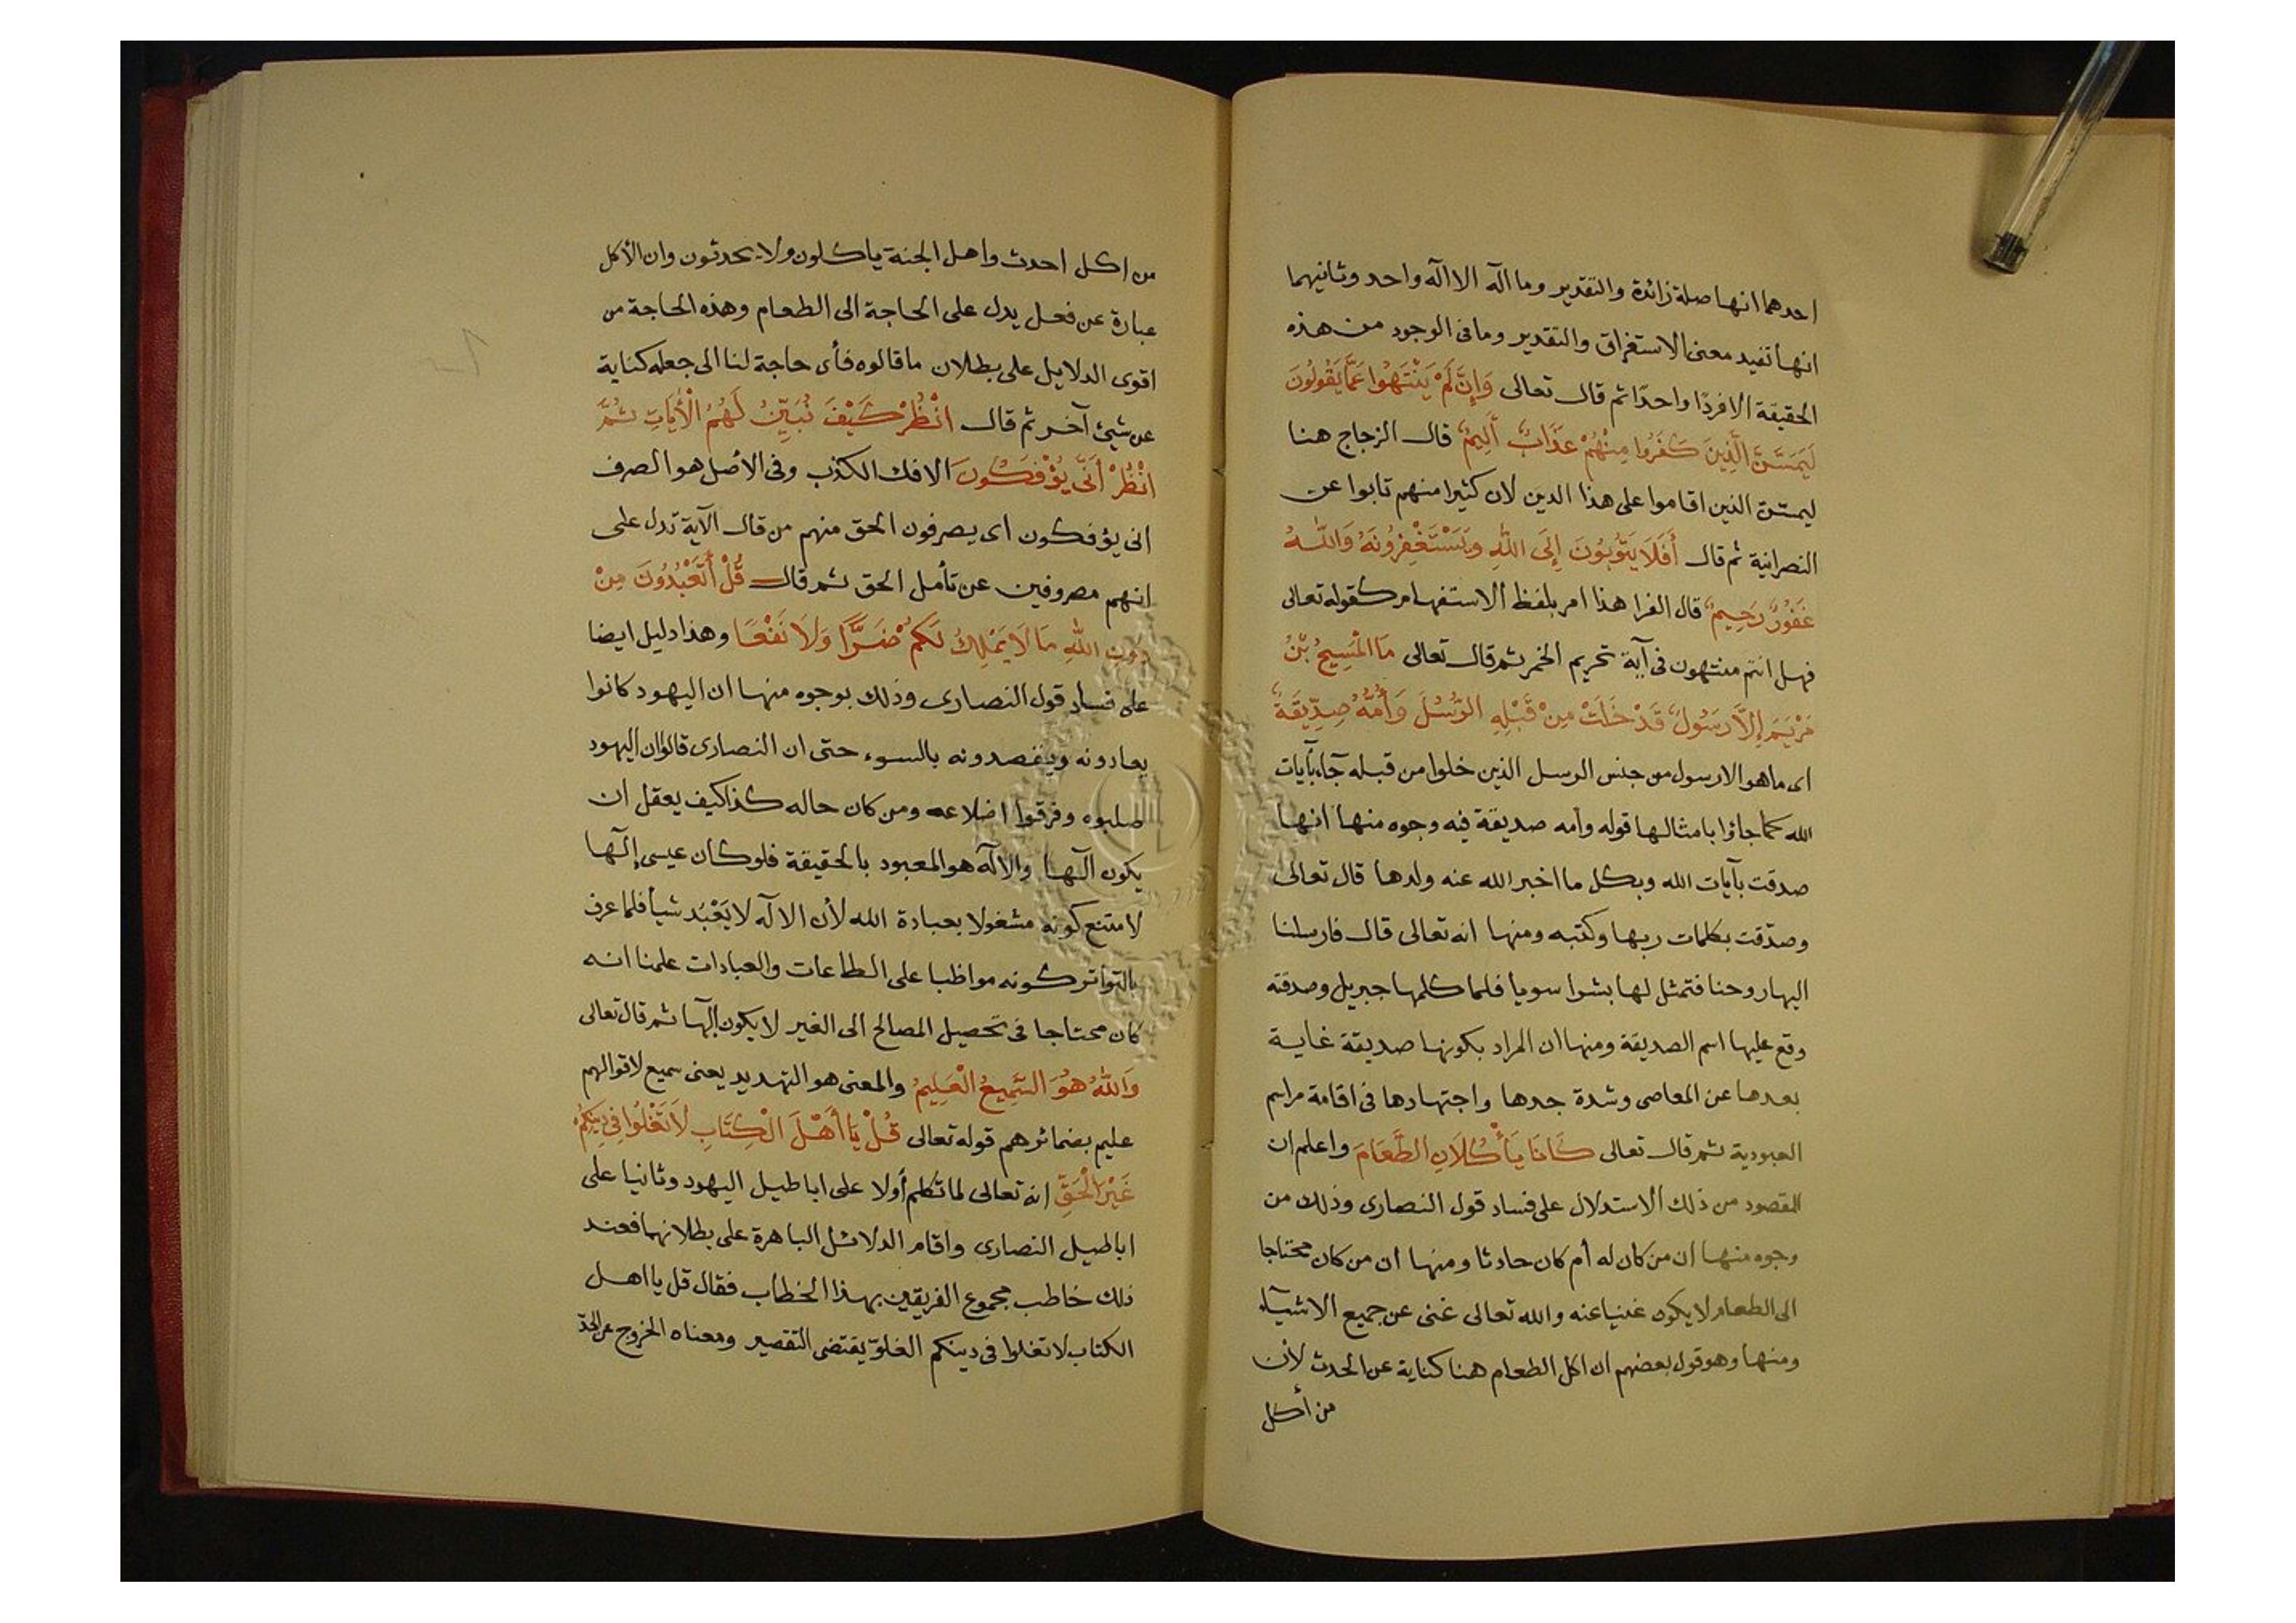 احدهما انها صلة زائدة والتقدير وما اله الا اله واحد وثانيهما
انها تفيد معنى الاستغراق والتقدير وما فى الوجود من هذه
الحقيقة الا فردًا واحدًا ثم قال تعالى وَإِنْ لَمْ يَنْتَهُوا عَمَّا يَقُولُونَ
لَيَمَسَّنَّ الَّذِينَ كَفَرُوا مِنْهُمْ عَذَابٌ أَلِيمٌ قال الزجاج هنا
ليمسّنّ الذين اقاموا على هذا الدين لان كثيرا منهم تابوا عن
النصرانية ثم قال أَفَلَا يَتُوبُونَ إِلَى اللهِ وَيَسْتَغْفِرُونَهُ وَاللهُ
غَفُورٌ رَحِيمٌ قال الفرا هذا امر بلفظ الاستفهام كقوله تعالى
فهل انتم منتهون فى آية تحريم الخمر ثم قال تعالى مَا الْمَسِيحُ بْنُ
مَرْيَمَ إِلَّا رَسُولٌ قَدْ خَلَتْ مِنْ قَبْلِهِ الرُّسُلُ وَأُمُّهُ صِدِّيقَةٌ
اى ما هو الا رسول من جنس الرسل الذين خلوا من قبله جآء بآيات
الله كما جاؤا بامثالها قوله وأمه صديقة فيه وجوه منها انها
صدقت بآيات الله وبكل ما اخبر الله عنه ولدها قال تعالى
وصدّقت بكلمات ربها وكتبه ومنها انه تعالى قال فارسلنا
اليها روحنا فتمثل لها بشرا سويا فلما كلمها جبريل وصدقته
وقع عليها اسم الصديقة ومنها ان المراد بكونها صديقة غاية
بعدها عن المعاصى وشدة جدها واجتهادها فى اقامة مراسم
العبودية ثم قال تعالى كَانَا يَأْكُلَانِ الطَّعَامَ واعلم ان
المقصود من ذلك الاستدلال على فساد قول النصارى وذلك من
وجوه منها ان من كان له أم كان حادثا ومنها ان من كان محتاجا
الى الطعام لا يكون غنيا عنه والله تعالى غنى عن جميع الاشيآء
ومنها وهو قول بعضهم ان اكل الطعام هنا كناية عن الحدث لأن
من أكل
من اكل احدث واهل الجنة ياكلون ولا يحدثون وان الأكل
عبارة عن فعل يدل على الحاجة الى الطعام وهذه الحاجة من
اقوى الدلايل على بطلان ما قالوه فأى حاجة لنا الى جعله كناية
عن شيئ آخر ثم قال انْظُرْ كَيْفَ نُبَيِّنُ لَهُمُ الْأَيَاتِ ثُمَّ
انْظُرْ أَنَّى يُؤْفَكُونَ الافك الكذب وفى الأصل هو الصرف
انى يؤفكون اى يصرفون الحق منهم من قال الآية تدل على
انهم مصروفين عن تأمل الحق ثم قال قُلْ أَتَعْبُدُونَ مِنْ
دُونِ اللهِ مَا لَا يَمْلِكُ لَكُمْ ضَرًّا وَلَا نَفْعًا وهذا دليل ايضا
على فساد قول النصارى وذلك بوجوه منها ان اليهود كانوا
يعادونه ويقصدونه بالسوء حتى ان النصارى قالوا ان اليهود
صلبوه وفرقوا اضلاعه ومن كان حاله كذا كيف يعقل ان
يكون آلها والاله هو المعبود بالحقيقة فلو كان عيسى إلها
لامتنع كونه مشغولا بعبادة الله لأن الاله لا يَعْبُد شيأ فلما عرف
بالتواتر كونه مواظبا على الطاعات والعبادات علمنا انه
كان محتاجا فى تحصيل المصالح الى الغير لا يكون إلها ثم قال تعالى
وَاللهُ هُوَ السَّمِيعُ الْعَلِيمُ والمعنى هو التهديد يعنى سميع لاقوالهم
عليم بضمائرهم قوله تعالى قُلْ يَا أَهْلَ الْكِتَابِ لَا تَغْلُوا فِي دِينِكُمْ
غَيْرَ الْحَقِّ انه تعالى لما تكلم أولا على اباطيل اليهود وثانيا على
اباطيل النصارى واقام الدلائل الباهرة على بطلانهما فعند
ذلك خاطب مجموع الفريقين بهذا الخطاب فقال قل يا اهل
الكتاب لا تغلوا فى دينكم الغلوّ يقتضى التقصير ومعناه الخروج عن الحدّ